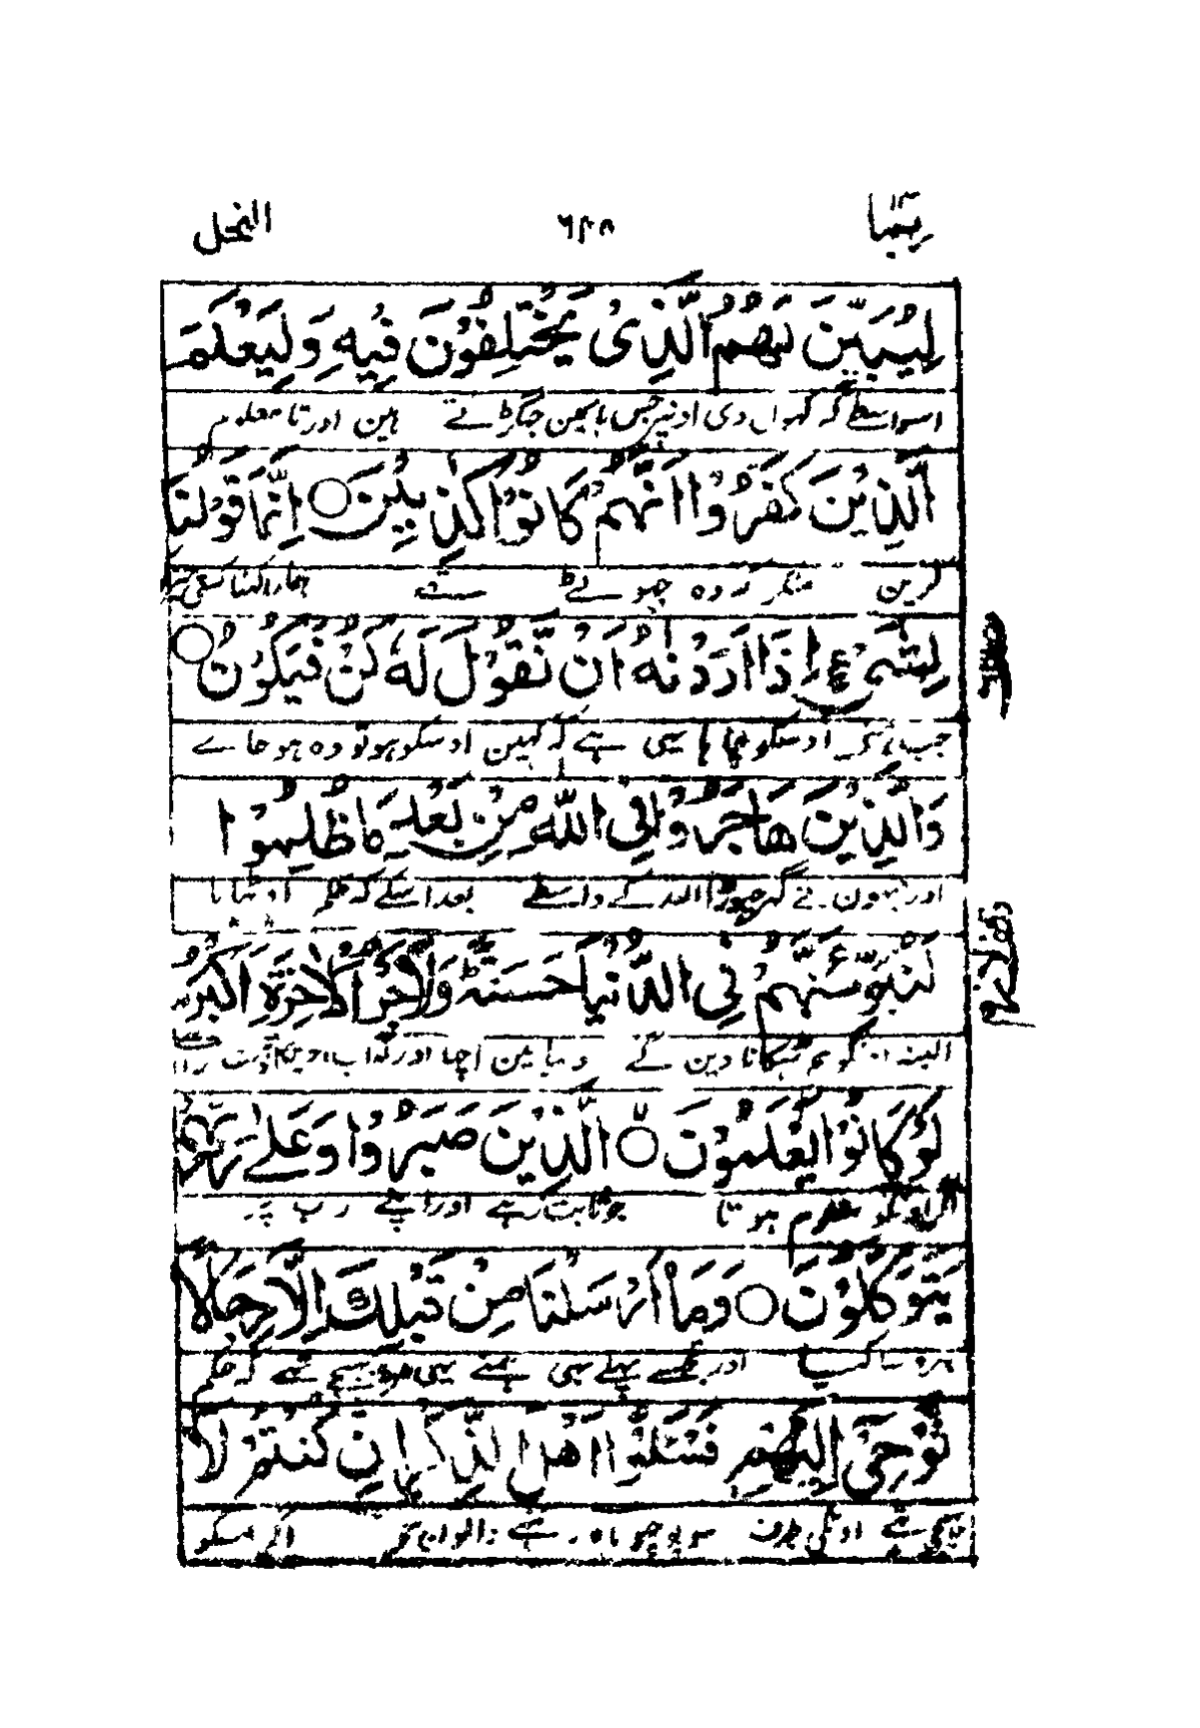 ربما ٦٢٨ النحل
لِيُبَيِّنَ لَهُمُ الَّذِىْ يَخْتَلِفُوْنَ فِيْهِ وَلِيَعْلَمَ
اسواسطے کہ کہول دی اونپر جس بات مین جہگڑتے ہین اور تا معلوم
الَّذِيْنَ كَفَرُوْا اَنَّهُمْ كَانُوْا كٰذِبِيْنَ ○ اِنَّمَا قَوْلُنَا
کرین منکر کہ وہ جہوٹے تھے ہمارا کہنا کسی
لِشَىْءٍ اِذَا اَرَدْنٰهُ اَنْ نَّقُوْلَ لَهٗ كُنْ فَيَكُوْنُ ○
جب ہمنے اوسکو چاہا یہی ہے کہ کہین اوسکو ہو تو وہ ہو جاے
وَالَّذِيْنَ هَاجَرُوْا فِى اللّٰهِ مِنْ بَعْدِ مَا ظُلِمُوْا
اور جنہون نے گہر چہوڑا اللہ کے واسطے بعد اسکے کہ ظلم اوٹہایا
لَنُبَوِّئَنَّهُمْ فِى الدُّنْيَا حَسَنَةً وَلَاَجْرُ الْاٰخِرَةِ اَكْبَرُ
البتہ انکو ہم ٹہکانا دین گے دنیا مین اچہا اور ثواب آخرت
لَوْ كَانُوْا يَعْلَمُوْنَ ○ الَّذِيْنَ صَبَرُوْا وَعَلٰى رَبِّهِمْ
اگر اونکو معلوم ہوتا جو ثابت رہے اور اپنے رب پر
يَتَوَكَّلُوْنَ ○ وَمَا اَرْسَلْنَا مِنْ قَبْلِكَ اِلَّا رِجَالًا
بہروسا کیا اور تجھسے پہلے بہی ہمنے یہی مرد بہیجے تھے کہ حکم
نُوْحِىْ اِلَيْهِمْ فَسْئَلُوْا اَهْلَ الذِّكْرِ اِنْ كُنْتُمْ لَا
تھے اونکی طرف سو پوچہو اگر تمکو